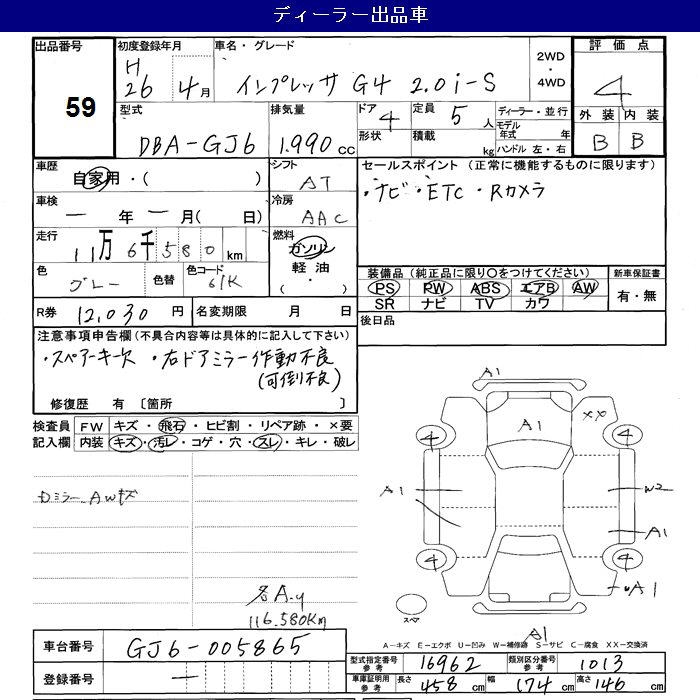 ディーラー出品車
出品番号 59
初度登録年月 H 26 4月
車名・グレード インプレッサ G4 2.0i-S
2WD ・ 4WD
評価点 4
外装 B 内装 B
型式 DBA-GJ6
排気量 1.990 cc
ドア 4
形状
定員 5 人
積載 kg
ディーラー・並行
モデル年式 年
ハンドル 左・右
車歴 自家用・( )
シフト AT
車検 ー年ー月( 日)
冷房 AAC
走行 11万6千580 km
燃料 ガソリン 軽油 ・( )
色 グレー 色替 色コード 61K
R券 12,030 円
名変期限 月 日
セールスポイント (正常に機能するものに限ります)
・ナビ・ETC・Rカメラ
装備品(純正品に限り○をつけてください)
PS PW ABS エアB AW
SR ナビ TV カワ
新車保証書 有・無
後日品
注意事項申告欄(不具合内容等は具体的に記入して下さい)
・スペアーキー欠 ・右ドアミラー作動不良
(可倒不良)
修復歴 有 〔箇所 〕
検査員記入欄
FW キズ・飛石・ヒビ割・リペア跡・×要
内装 キズ・汚レ・コゲ・穴・スレ・キレ・破レ
ミラー AWキズ
116.580Km
A1
A1
XX
4
4
A1
W2
A1
4
4
A1
スペア
A1
A−キズ E−エクボ U−凹み W−補修跡 S−サビ C−腐食 XX−交換済
車台番号 GJ6-005865
登録番号 ー
型式指定番号 参考 16962
類別区分番号 参考 1013
車庫証明用 参考 長さ 458 cm 幅 174 cm 高さ 146 cm